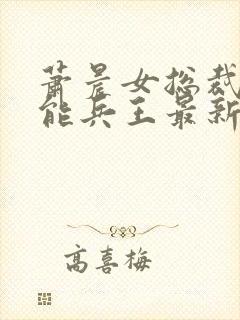 萧晨女总裁
能兵王最新
高喜梅